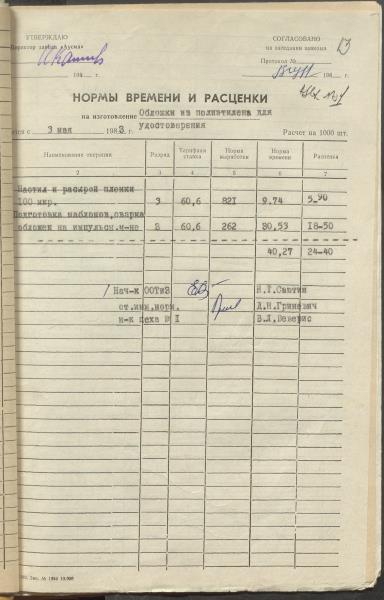 УТВЕРЖДАЮ
Директор завода „Аусма"
198 г.
СОГЛАСОВАНО
на заседании завкома
Протокол №
198 г.
13
НОРМЫ ВРЕМЕНИ И РАСЦЕНКИ
на изготовление Обложки из полиэтилена для
удостоверения
3 мая 1983 г. Расчет на 1000 шт.
Наименование операции Разряд Тарифная ставка Норма выработки Норма времени Расценка
2 3 4 5 6 7
Настил и раскрой пленки
100 мкр. 3 60,6 821 9.74 5-90
Подготовка шаблонов, сварка
обложек на импульсн. м-не 3 60,6 262 30,53 18-50
40,27 24-40
Нач-к ООТиЗ
ст.инж.норм. Л.Н.Гриневич
н-к цеха № I В.Л.Веверис
Зак. № 1944 10.000